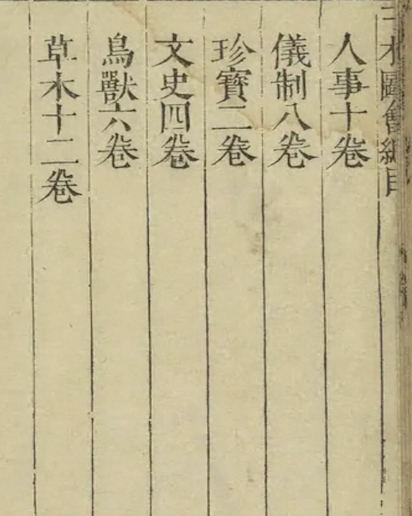 三才圖會總目
人事十卷
儀制八卷
珍寶二卷
文史四卷
鳥獸六卷
草木十二卷